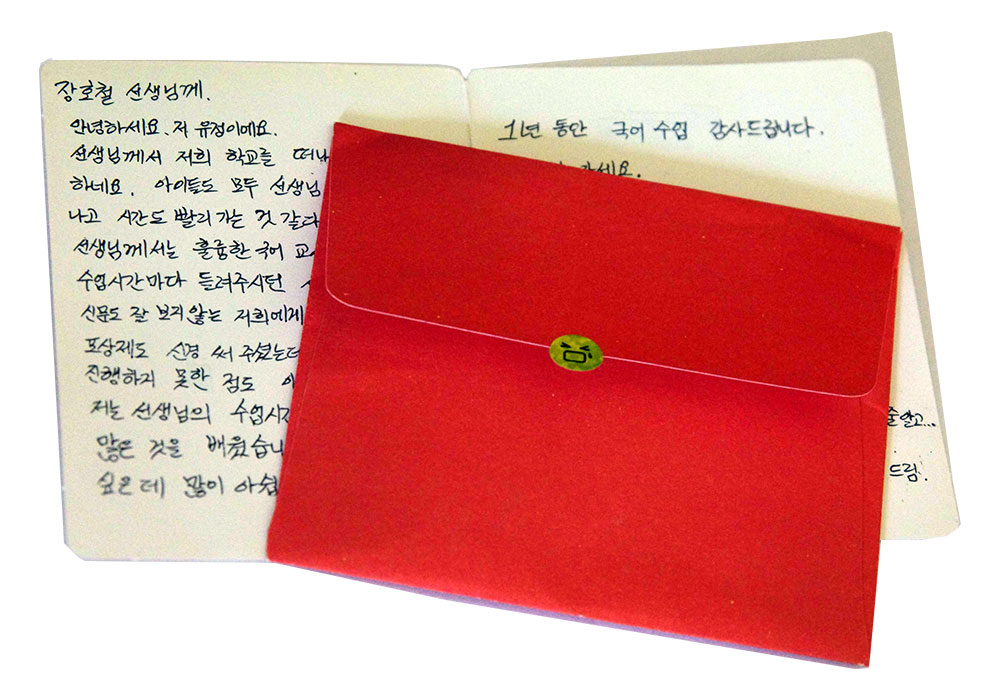 장호철 선생님께.
안녕하세요. 저 유정이에요.
선생님께서 저희 학교를 떠나
하네요. 아이들도 모두 선생님
나고 시간도 빨리 가는 것 같다
선생님께서는 훌륭한 국어
수업시간마다 들려주시던
신문도 잘 보지않는 저희에게
포상제도 신경 써 주셨는데
진행하지 못한 점도
저는 선생님의 수업시간
많은 것을 배웠습니
싶은데 많이 아쉽
1년 동안 국어 수업 감사드립니다.
가세요.
줄 알고...
드림.